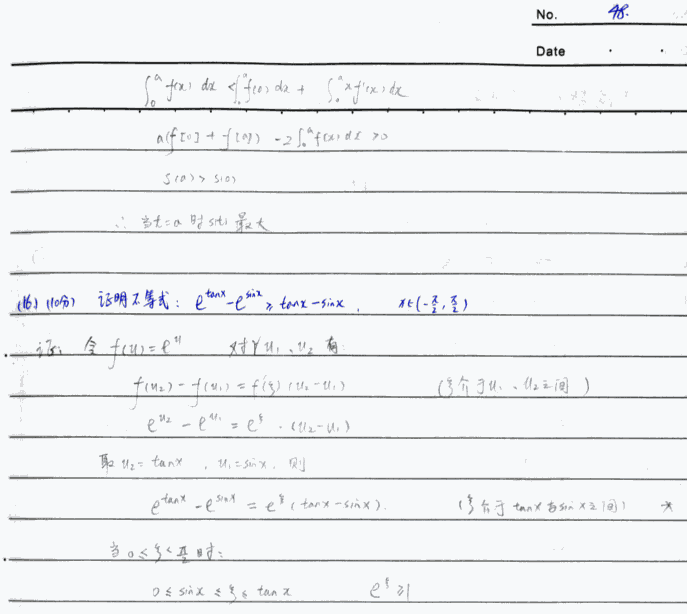 No. 48.
Date
∫₀ᵃ f(x) dx < ∫₀ᵃ f(0) dx + ∫₀ᵃ x f'(x) dx
a(f[0] + f(a)) - 2∫₀ᵃ f(x) dx > 0
S(a) > S(0)
∴ 当t=a 时 S(t) 最大
(16) (10分) 证明不等式: e^tanx - e^sinx ≥ tanx - sinx, x∈(-π/2, π/2)
证: 令 f(u) = e^u 对∀ u₁、u₂ 有
f(u₂) - f(u₁) = f'(ξ) (u₂-u₁) (ξ介于u₁、u₂之间)
e^u₂ - e^u₁ = e^ξ · (u₂-u₁)
取 u₂ = tanx , u₁ = sinx. 则
e^tanx - e^sinx = e^ξ (tanx - sinx). (ξ介于 tanx 与 sinx之间) *
当 0 ≤ ξ < π/2 时:
0 ≤ sinx ≤ ξ ≤ tanx e^ξ ≥1